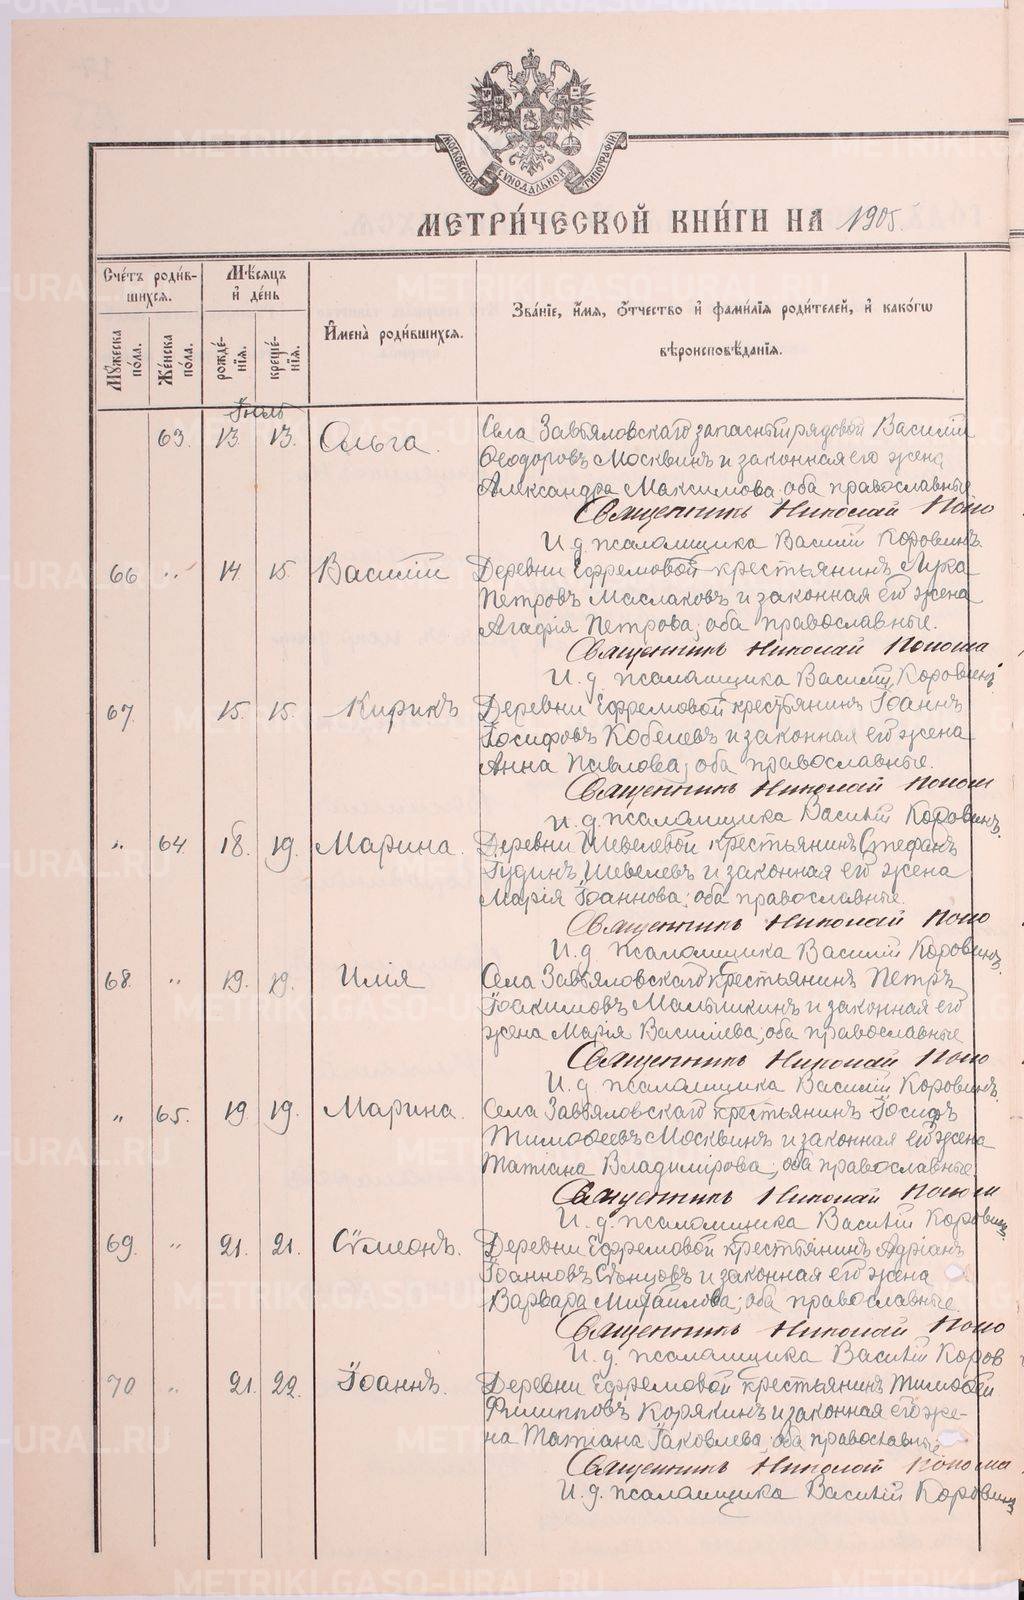 МОСКОВСКОЙ СѴНОДАЛЬНОЙ ТИПОГРАФІИ
МЕТРИ́ЧЕСКОЙ КНИ́ГИ НА 1905.
Счетъ роди́вшихся.
Мѣсяцъ и день
Имена̀ роди́вшихся.
Зва́ніе, и́мя, о́тчество и фами́лія роди́телей, и како́гѡ вѣроисповѣ́данія.
Мꙋ́жеска по́ла.
Же́нска по́ла.
рожде́нія.
креще́нія.
Іюль
63. 13. 13. Ольга. Села Завьяловскаго запасный рядовой Василій
Ѳеодоровъ Москвинъ и законная его жена
Александра Максимова, оба православные
Священникъ Николай
И. д. псаломщика Василій Коровинъ.
66 " 14 15. Василій Деревни Ефремовой крестьянинъ Лука
Петровъ Маслаковъ и законная его жена
Агафія Петрова; оба православные.
Священникъ Николай
И. д. псаломщика Василій Коровинъ
67 15. 15. Кирикъ Деревни Ефремовой крестьянинъ Іоаннъ
Іосифовъ Кобелевъ и законная его жена
Анна Павлова; оба православные.
Священникъ Николай
И. д. псаломщика Василій Коровинъ.
" 64. 18. 19. Марина. Деревни Шевелевой крестьянинъ Стефанъ
Гудинъ Шевелевъ и законная его жена
Марія Іоаннова; оба православные.
Священникъ Николай
И. д. псаломщика Василій Коровинъ.
68. " 19. 19. Илія Села Завьяловскаго крестьянинъ Петръ
Іоакимовъ Мамышкинъ и законная его
жена Марія Василіева, оба православные
Священникъ Николай
И. д. псаломщика Василій Коровинъ.
" 65. 19. 19. Марина. Села Завьяловскаго крестьянинъ Іосифъ
Тимоѳеевъ Москвинъ и законная его жена
Татіана Владимірова; оба православные.
Священникъ Николай
И. д. псаломщика Василій Коровинъ.
69. " 21. 21. Сѵмеонъ. Деревни Ефремовой крестьянинъ Адріанъ
Іоанновъ и законная его жена
Варвара Михаилова; оба православные.
Священникъ Николай
И. д. псаломщика Василій Коров
70 " 21. 22. Іоаннъ. Деревни Ефремовой крестьянинъ Тимоѳей
Филипповъ Корякинъ и законная его же-
на Татіана Іаковлева, оба православные
Священникъ Николай
И. д. псаломщика Василій Коровинъ
METRIKI.GASO-URAL.RU